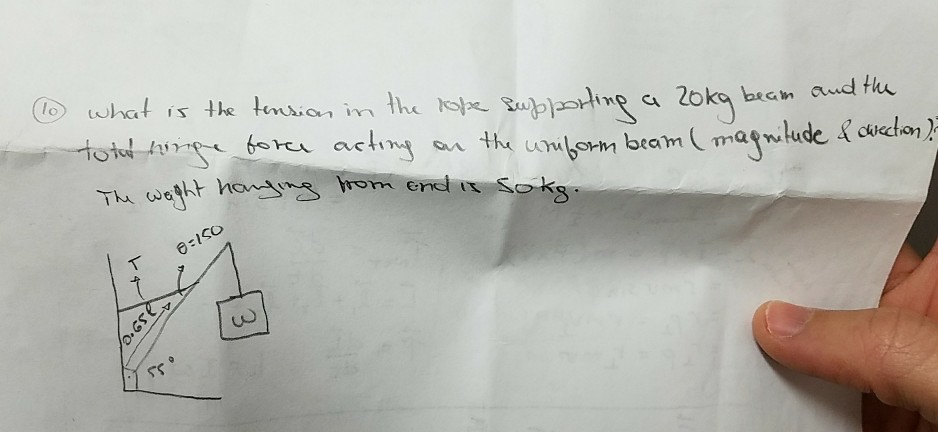 10 what is the tension in the rope supporting a 20kg beam and the
total hinge force acting on the uniform beam (magnitude & direction)?
The weght hanging from end is 50kg.
θ=150
T
0.65l
W
55°